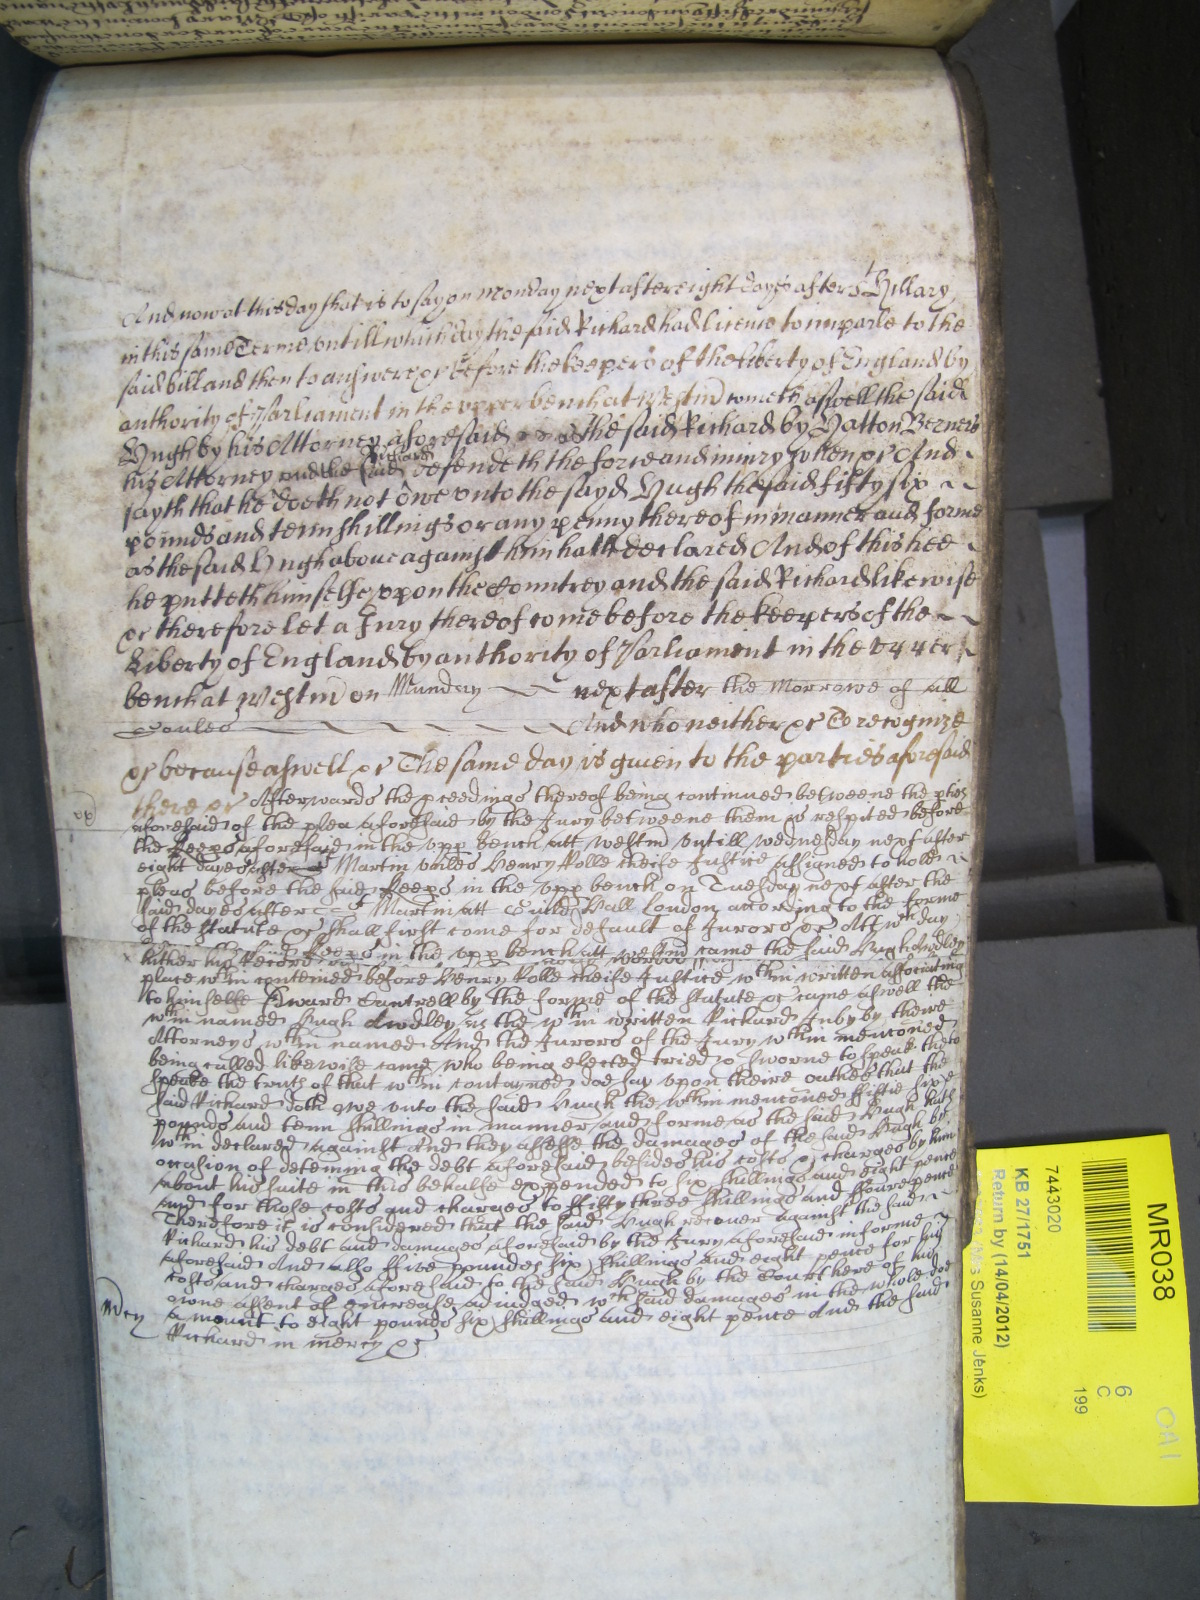 And now at this day that is to say on Monday next after eight dayes after St Hillary
in this same Terme untill which day the said Richard had licence to imparle to the
said bill and then to answere &c before the keepers of the liberty of England by
authority of Parliament in the upper bench at Westm cometh aswell the said
Hugh by his Attorney aforesaid as the said Richard by Hatton Berners
his Attorney and the said Richard defendeth the force and iniury when &c And
sayth that he doeth not owe unto the sayd Hugh the said fifty six
pounds and tenn shillings or any penny thereof in manner and forme
as the said Hugh above against him hath declared And of this hee
he putteth himselfe uppon the Countrey and the said Richard likewise
&c therefore let a Jury thereof come before the keepers of the
Liberty of England by authority of Parliament in the upper
bench at Westm on Munday next after the Morrowe of all
Soules And who neither &c To recognize
&c because aswell &c The same day is given to the parties aforesaid
there &c Afterwards the pceedings thereof being continued betweene the pties
aforesaid of the plea aforesaid by the Jury betweene them is respited before
the Keeps aforesaid in the upp bench att Westm untill Wednesday next after
eight dayes after St Martin unles Henry Rolle cheife Justice assigned to hold
pleas before the said Keeps in the upp bench on Tuesday next after the
said dayes after St Martin att Guild Hall London according to the forme
of the statute &c shall first come for default of Jurors &c Att wch day
before the said Keeps in the upp bench att Westm came the said Hugh Audley
place wthin conteined before Henry Rolle cheife Justice wthin written associating
to himselfe Edward Cantrell by the forme of the statute &c came aswell the
wthin named Hugh Awdley as the wthin written Richard Inby by theire
Attorneys wthin named And the Jurors of the Jury wthin menconed
being called likewise came who being elected tried & sworne to speak the
speake the truth of that wthin contayned doe say upon theire oathes that the
said Richard doth owe unto the said Hugh the wthin menconed fiftie sixe
pounds and tenn shillings in manner and forme as the said Hugh hath
wthin declared against And they assesse the damages of the said Hugh by
occasion of deteining the debt aforesaid besides his costs & charges by him
about his suite in this behalfe expended to six shillings and eight pence
and for those costs and charges to fifty three shillings and foure pence
Therefore it is considered that the said Hugh recover against the said
Richard his debt and damages aforesaid by the Jury aforesaid in forme
aforesaid And also five poundes six shillings and eight pence for his
costs and charges aforesaid to the said Hugh by the Court here of his
owne assent of encrease adiudged wch said damages in the whole doe
amount to eight pounds six shillings and eight pence And the said
Richard in mercy &c
Mcy
MR038
7443020
KB 27/1751
Return by (14/04/2012)
Susanne Jenks)
6
C
199
OA1